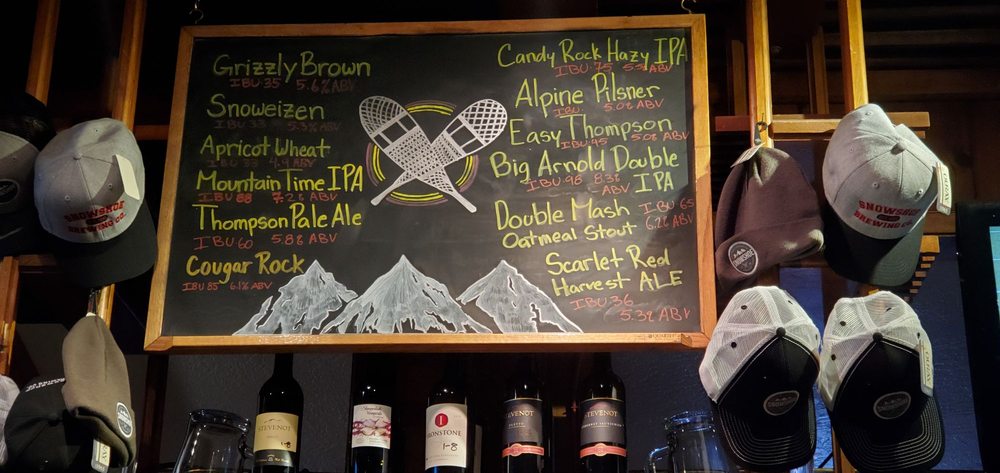 Grizzly Brown
IBU 35 5.6% ABV
Snoweizen
IBU 33 5.3% ABV
Apricot Wheat
IBU 33 4.9 ABV
Mountain Time IPA
IBU 88 7.2% ABV
Thompson Pale Ale
IBU 60 5.8% ABV
Cougar Rock
IBU 85 6.1% ABV
Candy Rock Hazy IPA
IBU 75 5.5% ABV
Alpine Pilsner
IBU 5.0% ABV
Easy Thompson
IBU 45 5.0% ABV
Big Arnold Double
IBU 98 8.3% IPA
ABV
Double Mash IBU 65
Oatmeal Stout 6.2% ABV
Scarlet Red
Harvest ALE
IBU 36
5.3% ABV
SNOWSHOE
BREWING CO.
SNOWSHOE
BREWING CO.
SNOWSHOE
STEVENOT
STEVENOT
IRONSTONE
1-8